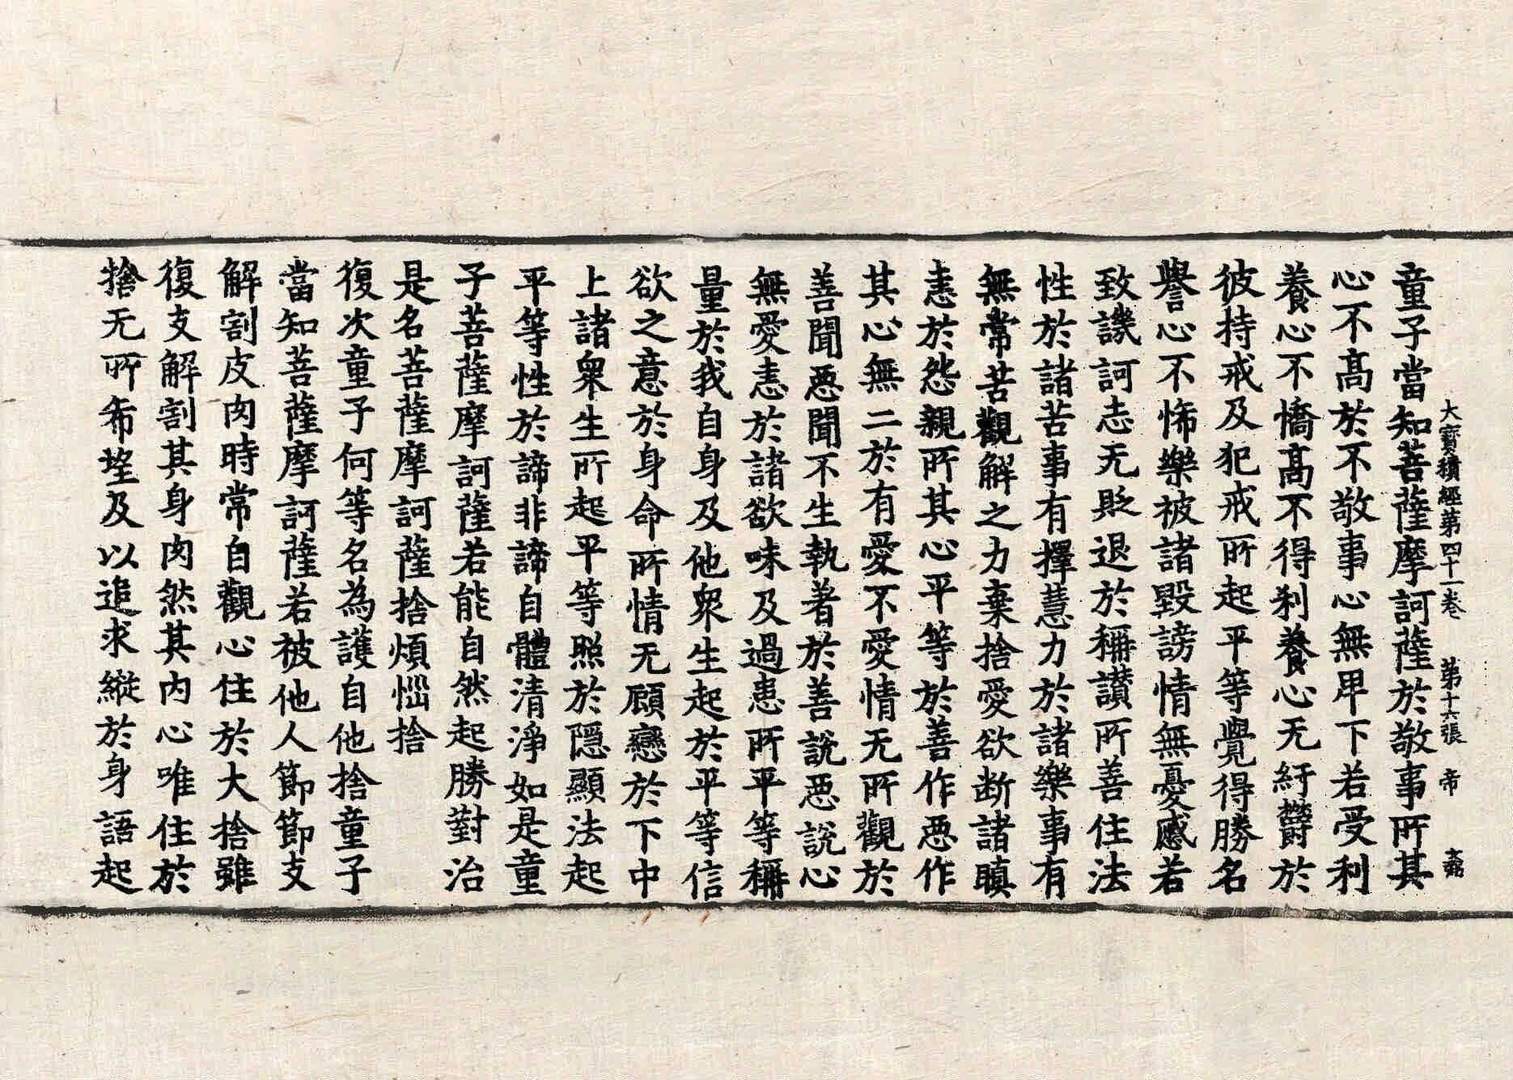 大寶積經第四十一卷 第十六張 帝
童子當知菩薩摩訶薩於敬事所其
心不高於不敬事心無卑下若受利
養心不憍高不得利養心无紆欝於
彼持戒及犯戒所起平等覺得勝名
譽心不怖樂被諸毀謗情無憂慼若
致譏訶志无貶退於稱讃所善住法
性於諸苦事有擇慧力於諸樂事有
無常苦觀解之力棄捨愛欲断諸瞋
恚於怨親所其心平等於善作惡作
其心無二於有愛不愛情无所觀於
善聞惡聞不生執著於善說惡說心
無愛恚於諸欲味及過患所平等稱
量於我自身及他衆生起於平等信
欲之意於身命所情无顧戀於下中
上諸衆生所起平等照於隱顯法起
平等性於諦非諦自體清淨如是童
子菩薩摩訶薩若能自然起勝對治
是名菩薩摩訶薩捨煩惱捨
復次童子何等名為護自他捨童子
當知菩薩摩訶薩若被他人節節支
解割皮肉時常自觀心住於大捨雖
復支解割其身肉然其內心唯住於
捨无所希望及以追求縱於身語起